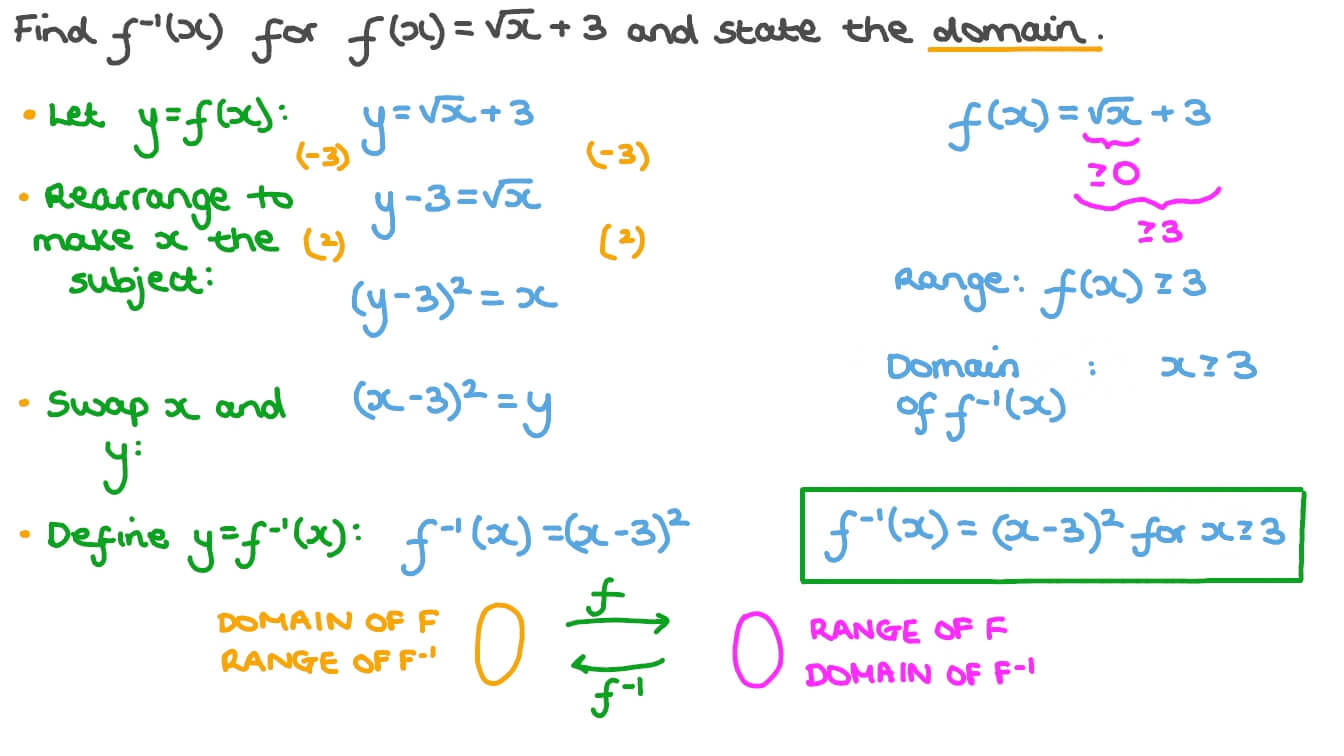 Find f⁻¹(x) for f(x) = √x + 3 and state the domain.
• Let y=f(x): y=√x + 3
(-3) (-3)
• Rearrange to y-3=√x
make x the (²) (²)
subject:
(y-3)² = x
• Swap x and (x-3)² = y
y:
• Define y=f⁻¹(x): f⁻¹(x) =(x-3)²
f(x) = √x + 3
≥0
≥3
Range: f(x) ≥ 3
Domain : x ≥ 3
of f⁻¹(x)
f⁻¹(x) = (x-3)² for x ≥ 3
DOMAIN OF F
RANGE OF F⁻¹
f
f⁻¹
RANGE OF F
DOMAIN OF F⁻¹